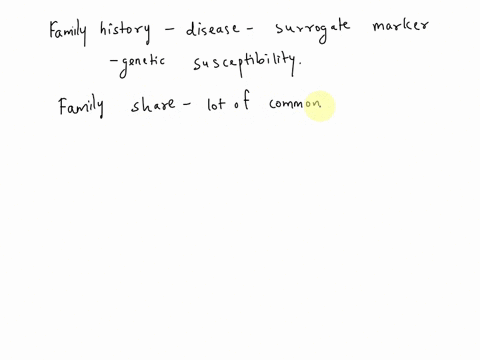 Family history - disease - surrogate marker
- genetic susceptibility.
Family share - lot of common